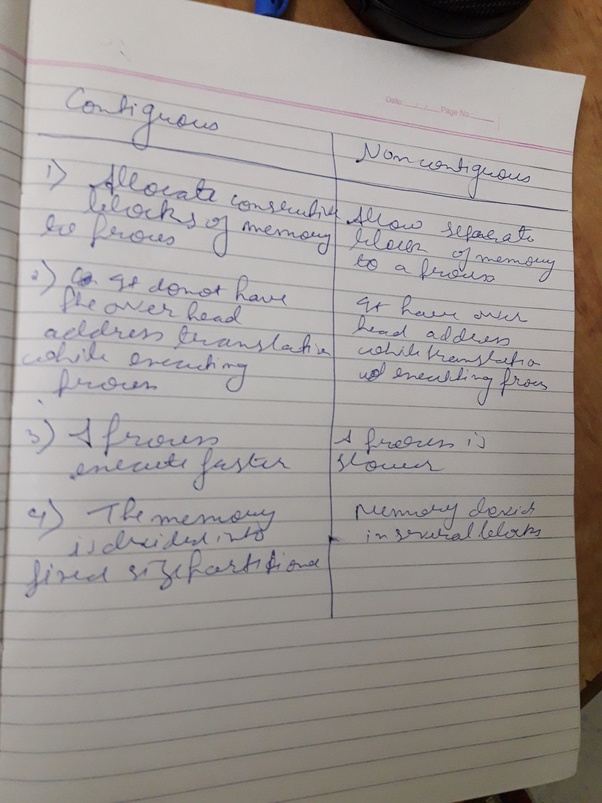 Date: Page No.
Contiguous
Noncontiguous
1) Allocate consecutive
blocks of memory
to process
Allow separate
block of memory
to a process
2) It donot have
the over head
address translation
while executing
process
It have over
head address
while translation
executing process
3) A process
execute faster
A process is
slower
4) The memory
is devided into
fixed size partitions
Memory devid
in several blocks